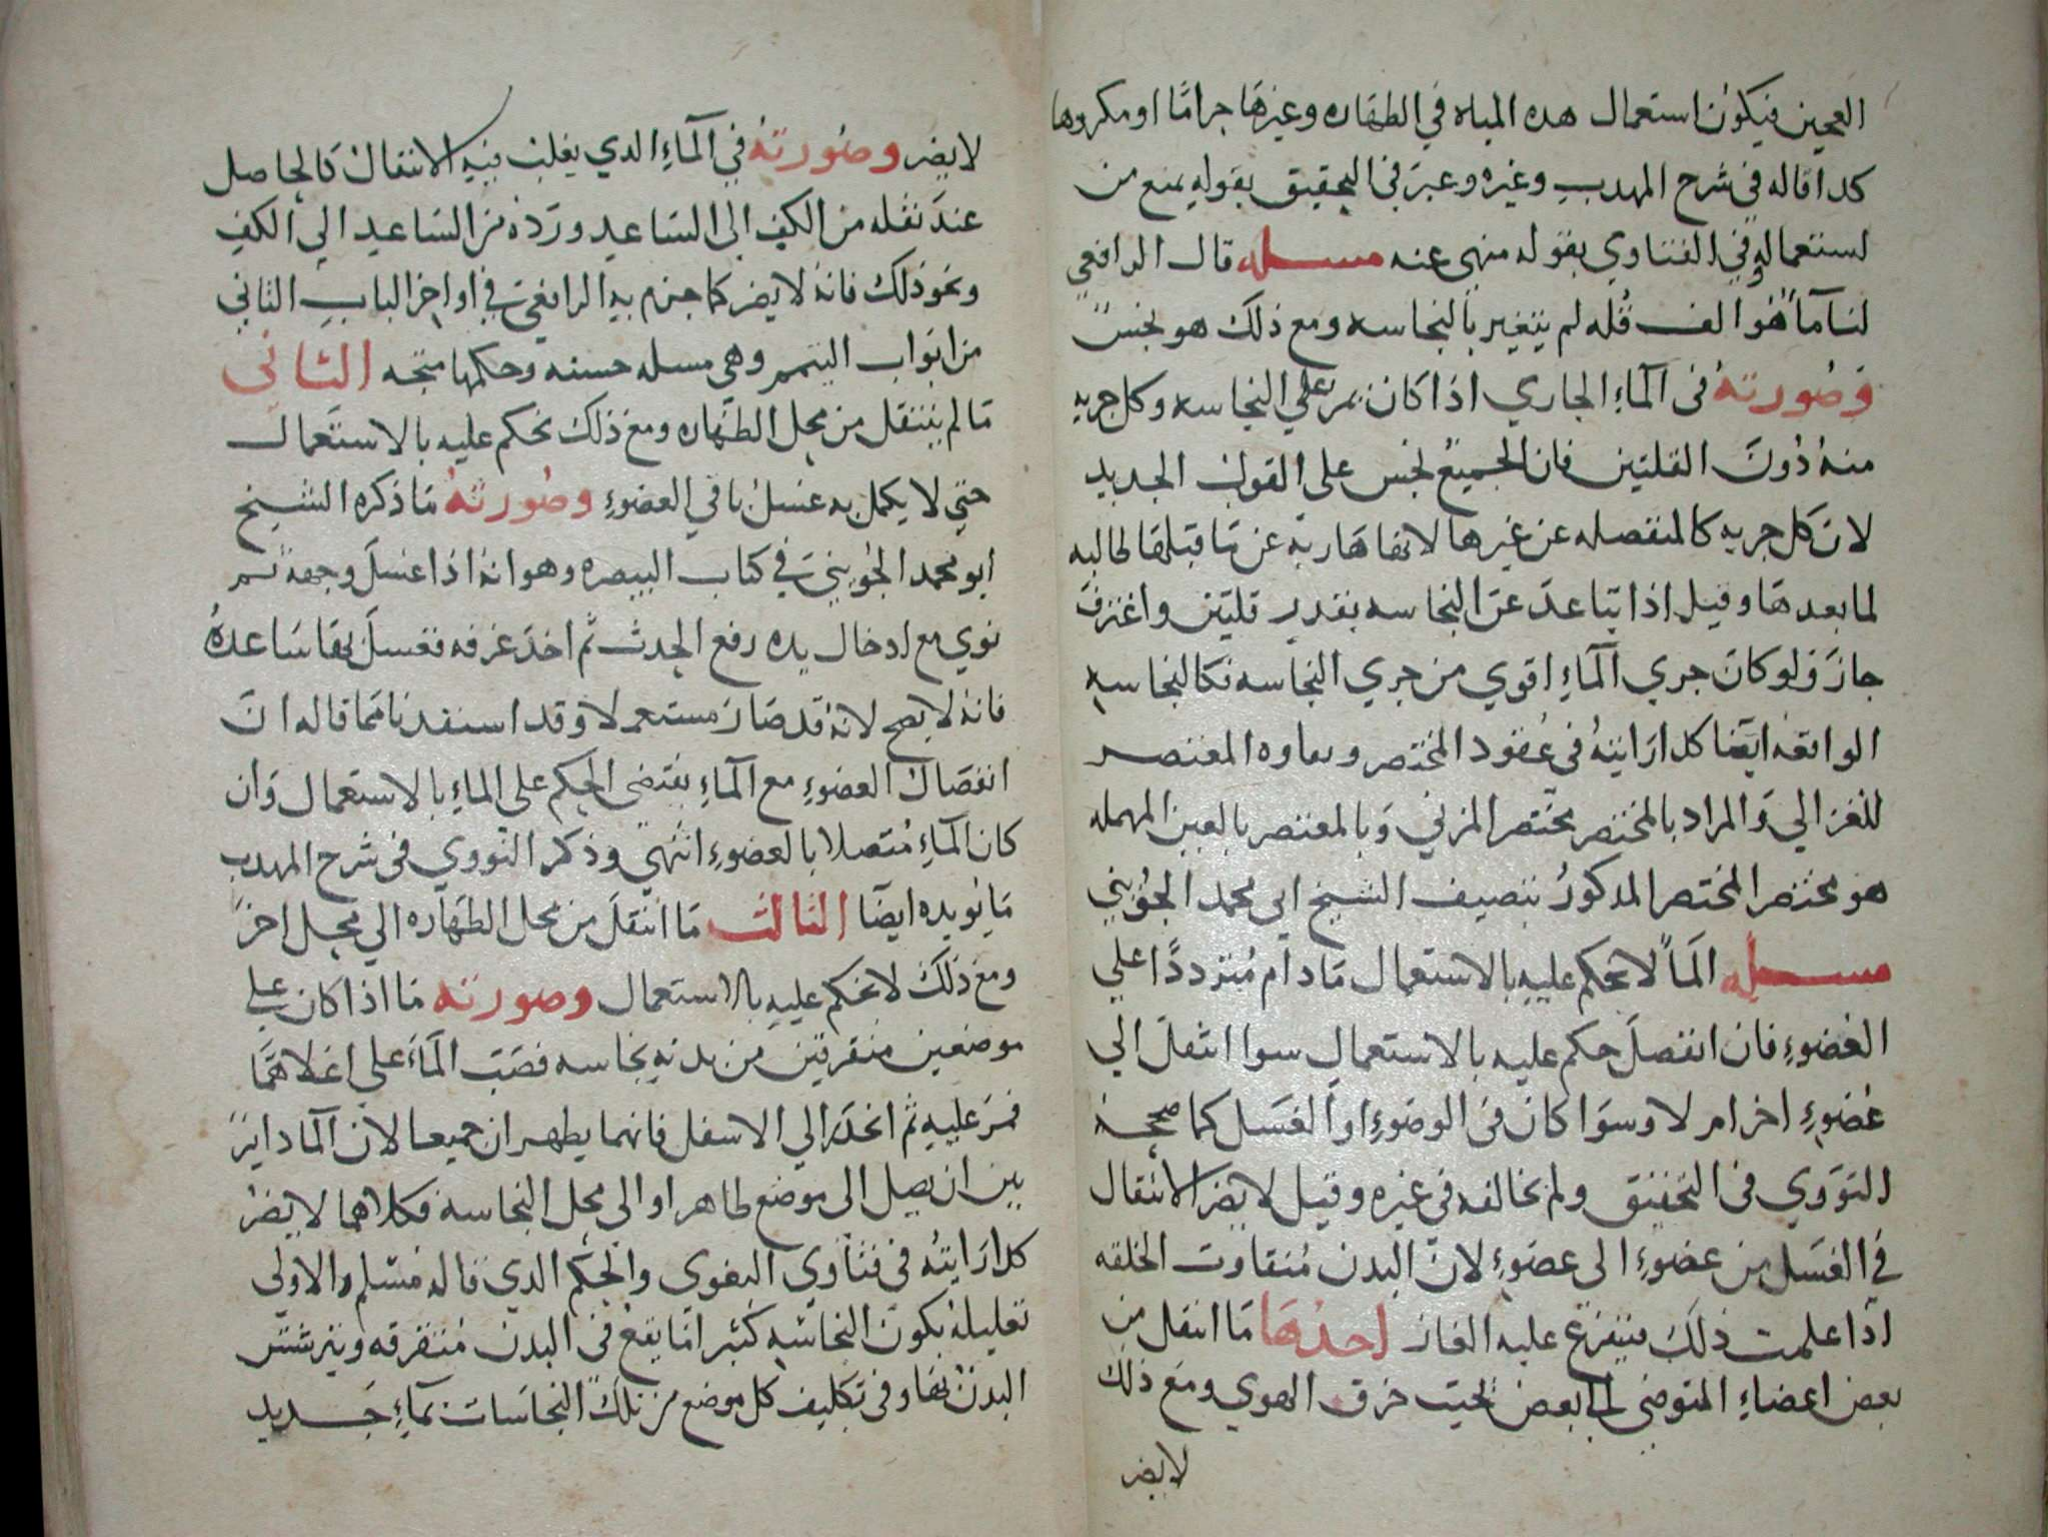 العجين فيكون استعمال هده المياه في الطهاره وغيرها حراما او مكروها
كدا قاله في شرح المهدب وغيره وعبر في التحقيق بقوله يمنع من
استعماله وفي الفتاوي بقوله منهي عنه مسله قال الرافعي
لنا مآ هو الف قله لم يتغير بالنجاسه ومع ذلك هو نجس
وصورته في المآء الجاري اذا كان يمر علي النجاسه وكل جريه
منه دون القلتين فان الجميع نجس علي القول الجديد
لان كل جريه كالمنفصله عن غيرها لانها هاربة عن ما قبلها طالبه
لما بعدها وقيل اذا تباعد عن النجاسه بقدر قلتين واغترف
جاز ولو كان جري المآء اقوي من جري النجاسه فكالنجاسه
الواقفه ايضا كدا رايته في عقود المختصر ونقاوه المعتصر
للغزالي والمراد بالمختصر مختصر المزني وبالمعتصر بالعين المهمله
هو مختصر المختصر المدكور تصنيف الشيخ ابي محمد الجويني
مسله المآ لا يحكم عليه بالاستعمال ما دام مترددا علي
العضوء فان انفصل حكم عليه بالاستعمال سوا انتقل الي
عضوء اخر ام لا وسوا كان في الوضوء او الغسل كما صححه
النووي في التحقيق ولم يخالفه في غيره وقيل لا يضر الانتقال
في الغسل من عضوء الى عضوء لان البدن متفاوت الخلقه
اذا علمت ذلك فيتفرع عليه الغاز احدها ما انتقل من
بعض اعضاء المتوضي الي بعض بحيث خرق الهوي ومع ذلك
لا يضر
لا يضر وصورته في المآء الدي يغلب فيه الانتقال كالحاصل
عند نقله من الكف الى الساعد ورده من الساعد الي الكف
ونحو ذلك فانه لا يضر كما جزم به الرافعي في اواخر الباب الثاني
من ابواب التيمم وهي مسله حسنه وحكمها متجه الثاني
ما لم ينتقل من محل الطهاره ومع ذلك نحكم عليه بالاستعمال
حتي لا يكمل به غسل باقي العضوء وصورته ما ذكره الشيخ
ابو محمد الجويني في كتاب التبصره وهو انه اذا غسل وجهه ثم
نوي مع ادخال يده رفع الحدث ثم اخد غرفه فغسل بها ساعده
فانه لا يصح لانه قد صار مستعملا وقد استفدنا مما قاله ان
انفصال العضوء مع المآء يقتضي الحكم علي الماء بالاستعمال وان
كان المآء متصلا بالعضوء انتهي وذكر النووي في شرح المهدب
ما يويده ايضا الثالث ما انتقل من محل الطهاره الي محل اخر
ومع ذلك لا يحكم عليه بالاستعمال وصورته ما اذا كان علي
موضعين متفرقين من بدنه نجاسه فصب المآء علي اعلاهما
فمر عليه ثم انحدر الي الاسفل فانهما يطهران جميعا لان المآ داير
بين ان يصل الى موضع طاهر او الي محل النجاسه فكلاهما لا يضر
كدا رايته في فتاوي البغوي والحكم الدي قاله مسلم والاولي
تعليله بكون النجاسه كثيرا ما يقع في البدن متفرقه ويترشش
البدن بها وفي تكليف كل موضع من تلك النجاسات بمآء جديد